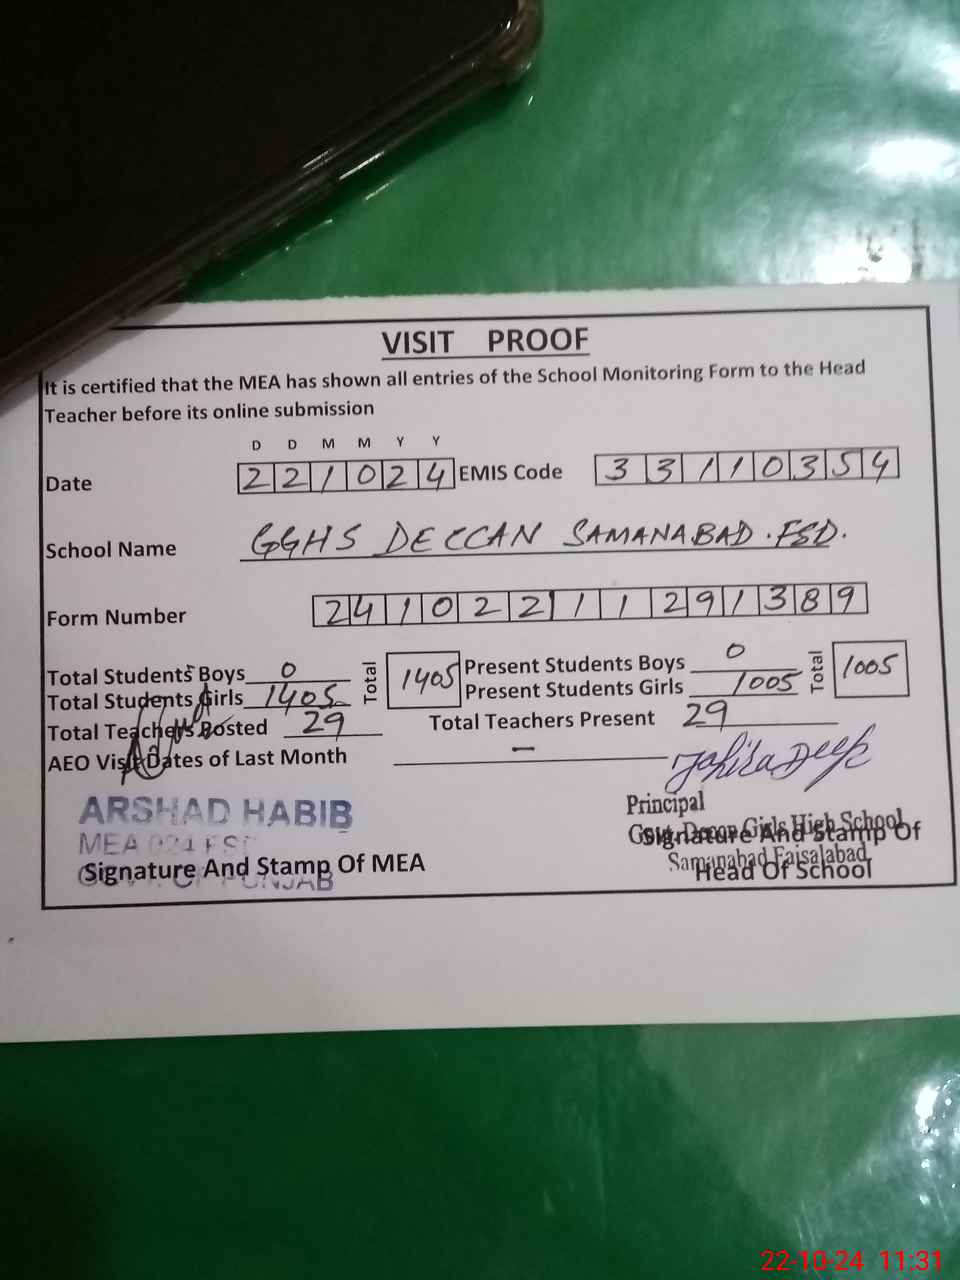 VISIT PROOF
It is certified that the MEA has shown all entries of the School Monitoring Form to the Head
Teacher before its online submission
D D M M Y Y
Date 221024 EMIS Code 33110354
School Name GGHS DECCAN SAMANABAD. FSD.
Form Number 24102211291389
Total Students Boys 0 Total 1405 Present Students Boys 0 Total 1005
Total Students Girls 1405 Present Students Girls 1005
Total Teachers Posted 29 Total Teachers Present 29
AEO Visit Dates of Last Month –
ARSHAD HABIB
MEA 024 FSD
GOVT. OF PUNJAB
Signature And Stamp Of MEA
Principal
Govt. Deccan Girls High School
Samanabad Faisalabad
Signature And Stamp Of
Head Of School
22-10-24 11:31